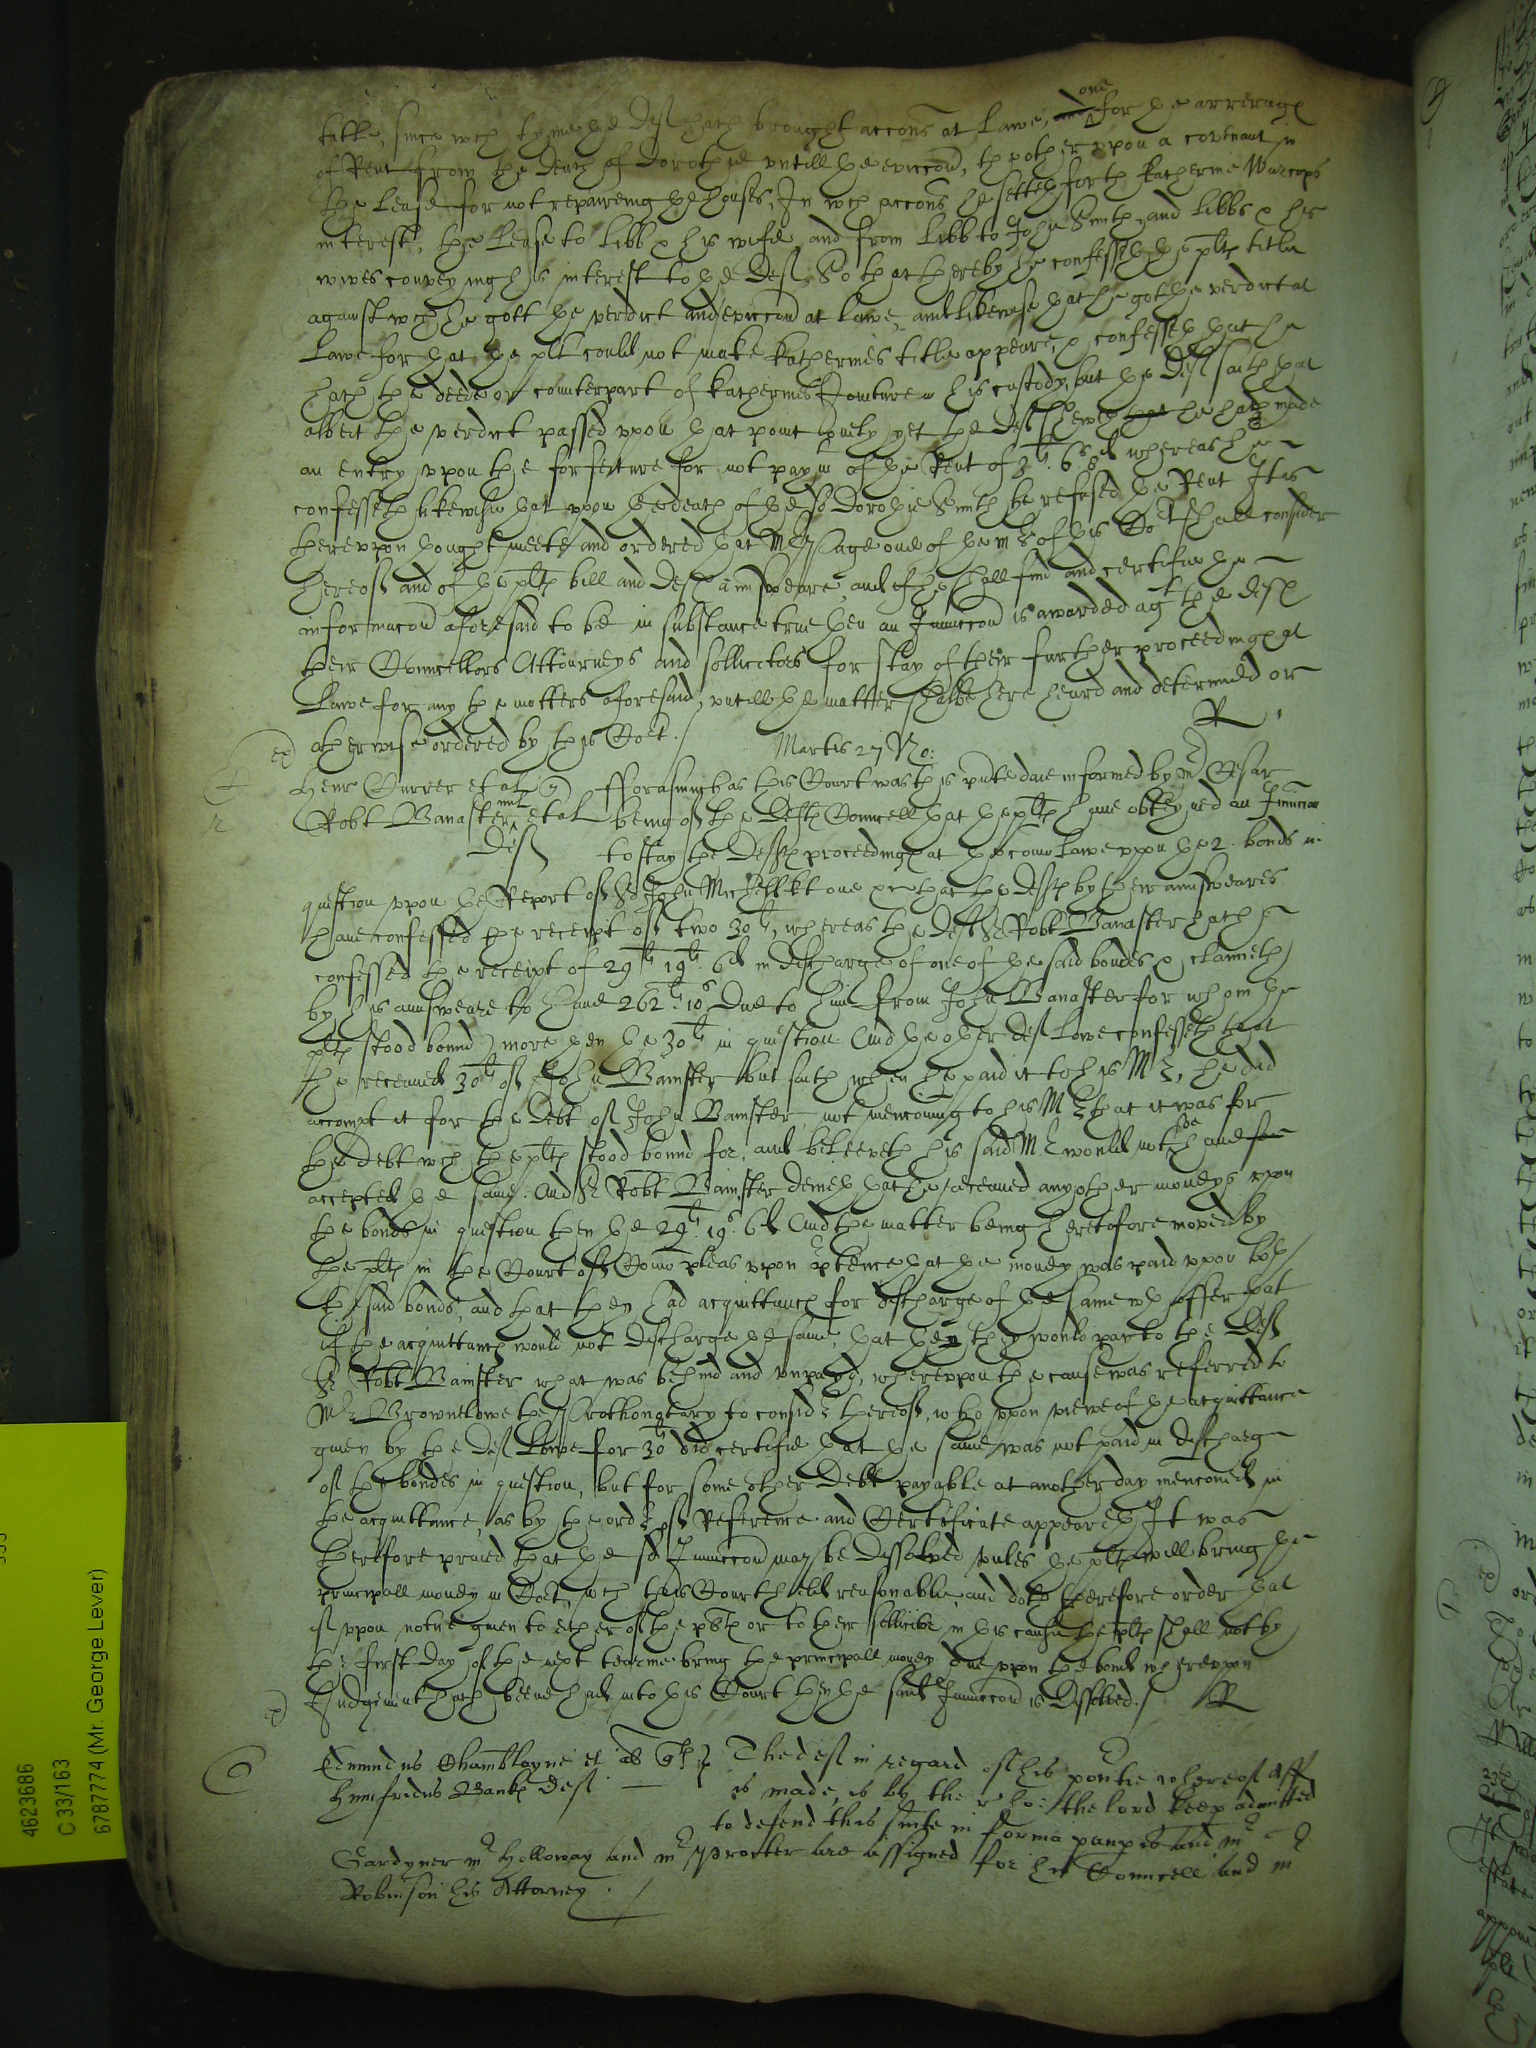 title, since wch tyme the Deft hath brought accons at Lawe, and one for the arrerages
of Rent from the death of Dorothie untill the eviccon, the other upon a covenant in
the Lease for not repaireing the houses, In wch accons he setteth forth Katherine Warcops
interest, the Lease to Libb & his wife and from Libb to John Smith, and Libbs & his
wives conveying his interest to the Deft, So that thereby he confesseth the plts title
against wch he gott the verdict and eviccon at Lawe, and likewise that he got the verdict at
Lawe for that the plt could not make Katherines title appeare, & confesseth that he
hath the deede or counterpart of Katherines Jointure in his custody, but the Deft saith that
albeit the verdict passed upon that point onely yet the Deft sheweth that he hath made
an entry upon the forfeiture for not paymt of the Rent of 3li 6s 8d whereas he
confesseth likewise that upon the death of the sd Dorothie Smith he refused the Rent It is
thereupon thought meete and ordered that Mr Page one of the mrs of this Cort shall consider
thereof and of the plts bill and Defts answeare, and if he shall find and certifie the
informacon aforesaid to be in substance true then an Iniunccon is awarded agt the defts
their Councellors Attourneys and sollicitors for stay of their further proceedings at
Lawe for any the matters aforesaid, untill the matter shalbe here heard and determined or
otherwise ordered by this Cort. R
Martis 27 No:
Henr Currer et al Forasmuch as this Court was this pnte daie informed by Mr Cesar
Robt Banaster mil et al being of the Defts Councell that the plts have obteyned an Iniunccon
Deft to stay the Defts proceedings at the comon Lawe upon the 2 bonds in
question upon the Report of Sr John Michell kt one &c that the Defts by their answeares
have confessed the receipt of two 30li, whereas the Deft Sr Robt Banaster hath
confessed the receipt of 29li 19s 6d in discharge of one of the said bondes & claimeth
by his answeare to have 262li 10s due to him from John Banaster for whom the
plts stood bound more then the 30li in question. And the other Deft Lowe confesseth that
he received 30li of John Banister but saith when he paid it to his Mr, he did
accompt it for the Debt of John Banister not mencioning to his Mr that it was for
the debt wch the plts stood bound for, and beleeveth his said Mr would not have
accepted the same. And Sr Robt Banister denieth that he received any other moneys upon
the bonds in question then the 29li 19s 6d And the matter being heretofore moved by
the plts in the Court of Comon pleas upon ptence that the money was paid upon both
the said bonds, and that they had acquittances for discharge of the same wth offer that
if the acquittances would not discharge the same, that then they would pay to the Deft
Sr Robt Banister what was behind and unpayd, whereupon the cause was referred to
Mr Brownelowe the Prothonotary to consider thereof, who upon viewe of the acquittance
given by the Deft Lowe for 30li did certifie that the same was not paid in discharg
of the bondes in question, but for some other Debt payable at another day mencioned in
the acquittance, as by the order of Reference and Certificate appeareth It was
therefore praied that the sd Iniunccon may be dissolved unles the plts will bring the
principall money in Cort, wch this Court held reasonable, and doth therefore order that
if upon notice given to either of the plts or to their sollicitor in this cause the plts shall not by
the first day of the next tearme bring the principall money due upon the bond whereupon
Judgement hath beene had into this Court then the said Iniunccon is dissolved. R
Edmundus Chamblayne et al The deft in regard of his povtie whereof Aff
Humfridus Banks Deft is made, is by the r ho: the lord keep admitted
to defend this suite in forma paupis and mr
Gardyner mr Holloway and mr Procter are assigned for his Councell and mr
Robinson his Attorney.
4623686
C 33/163
6787774 (Mr. George Lever)